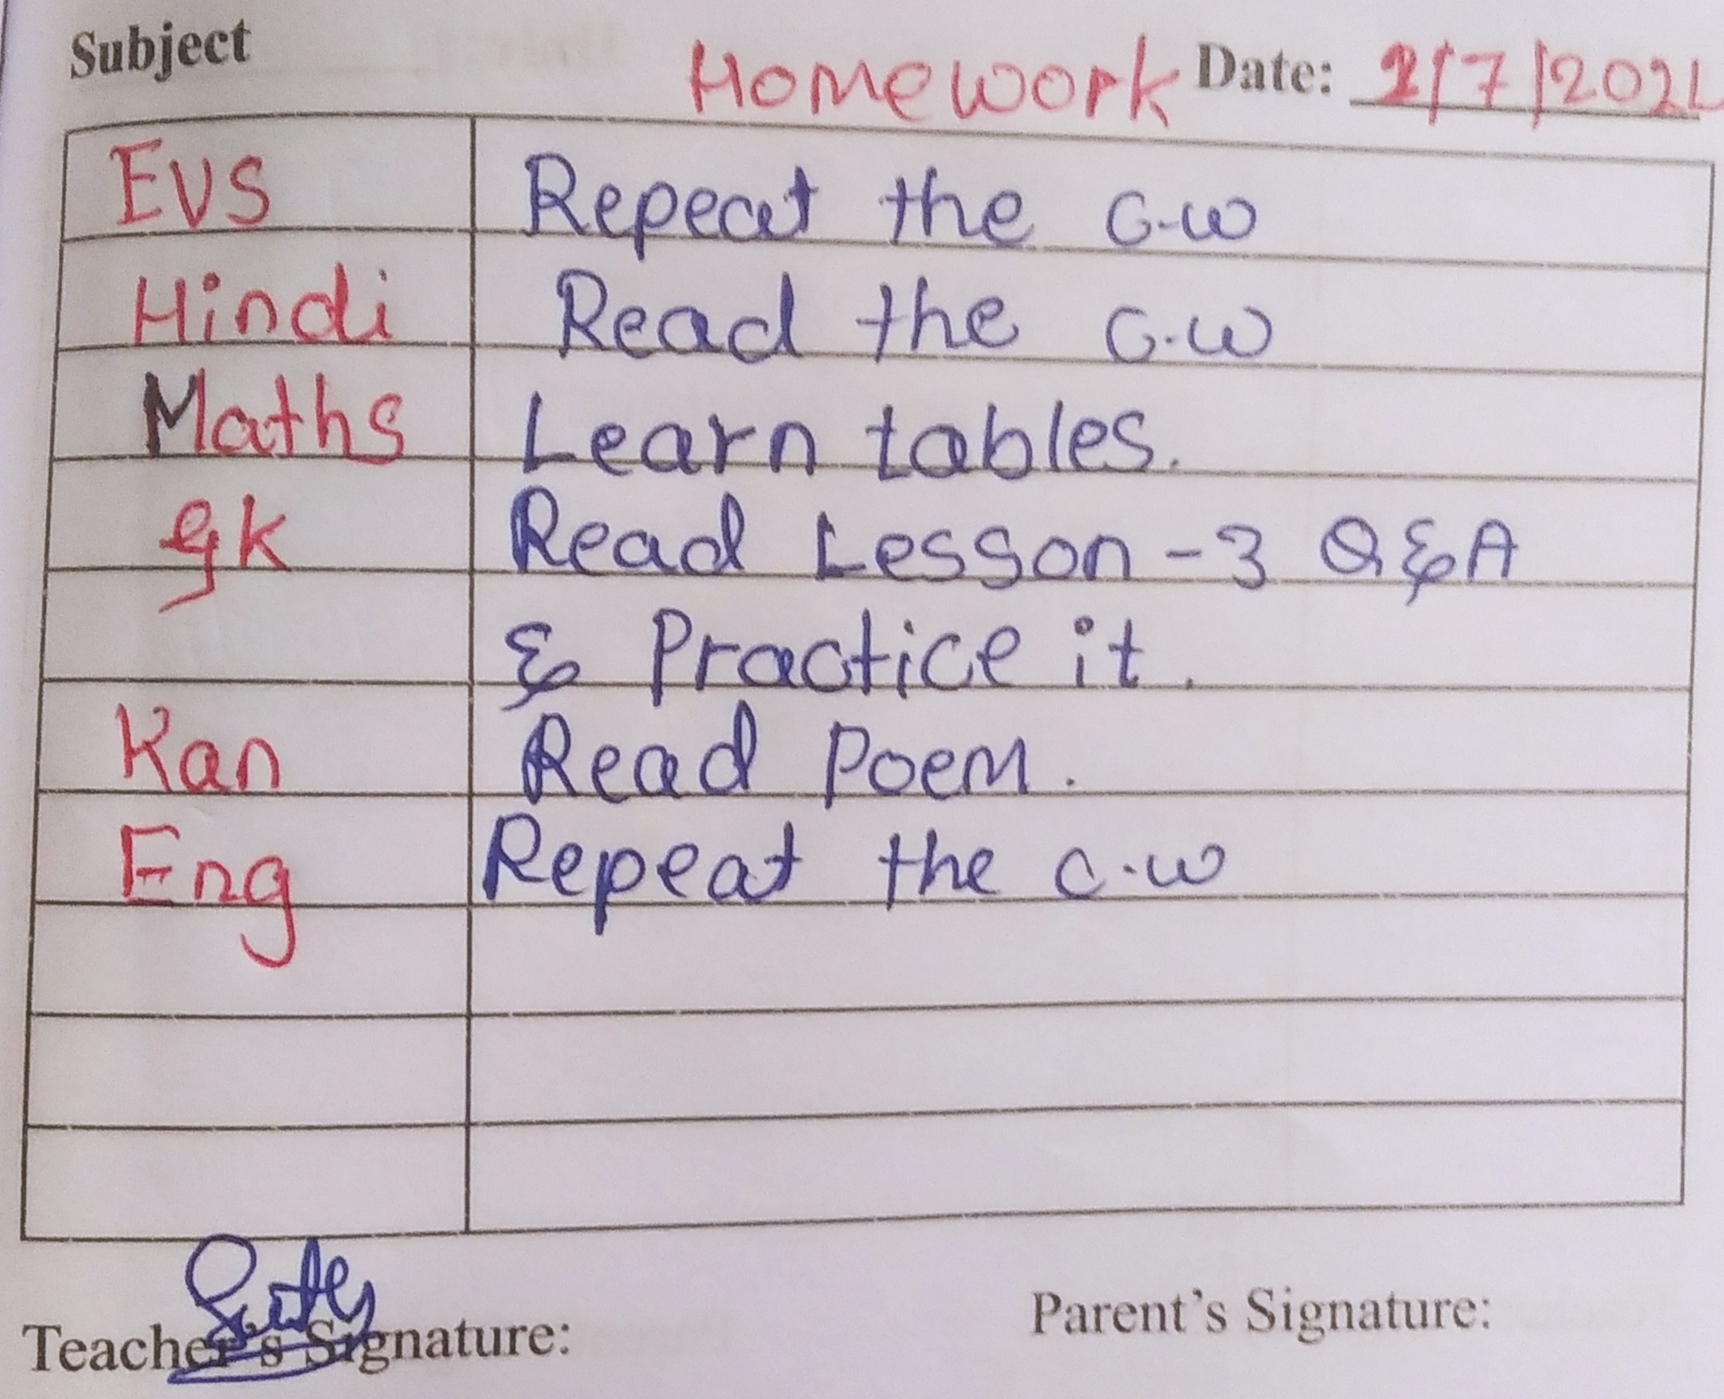 Subject Homework Date: 2/7/2021
EVS Repeat the C-W
Hindi Read the C.W
Maths Learn tables.
gk Read Lesson-3 Q&A
& Practice it.
Kan Read Poem.
Eng Repeat the C.W
Teacher's Signature: Parent's Signature: